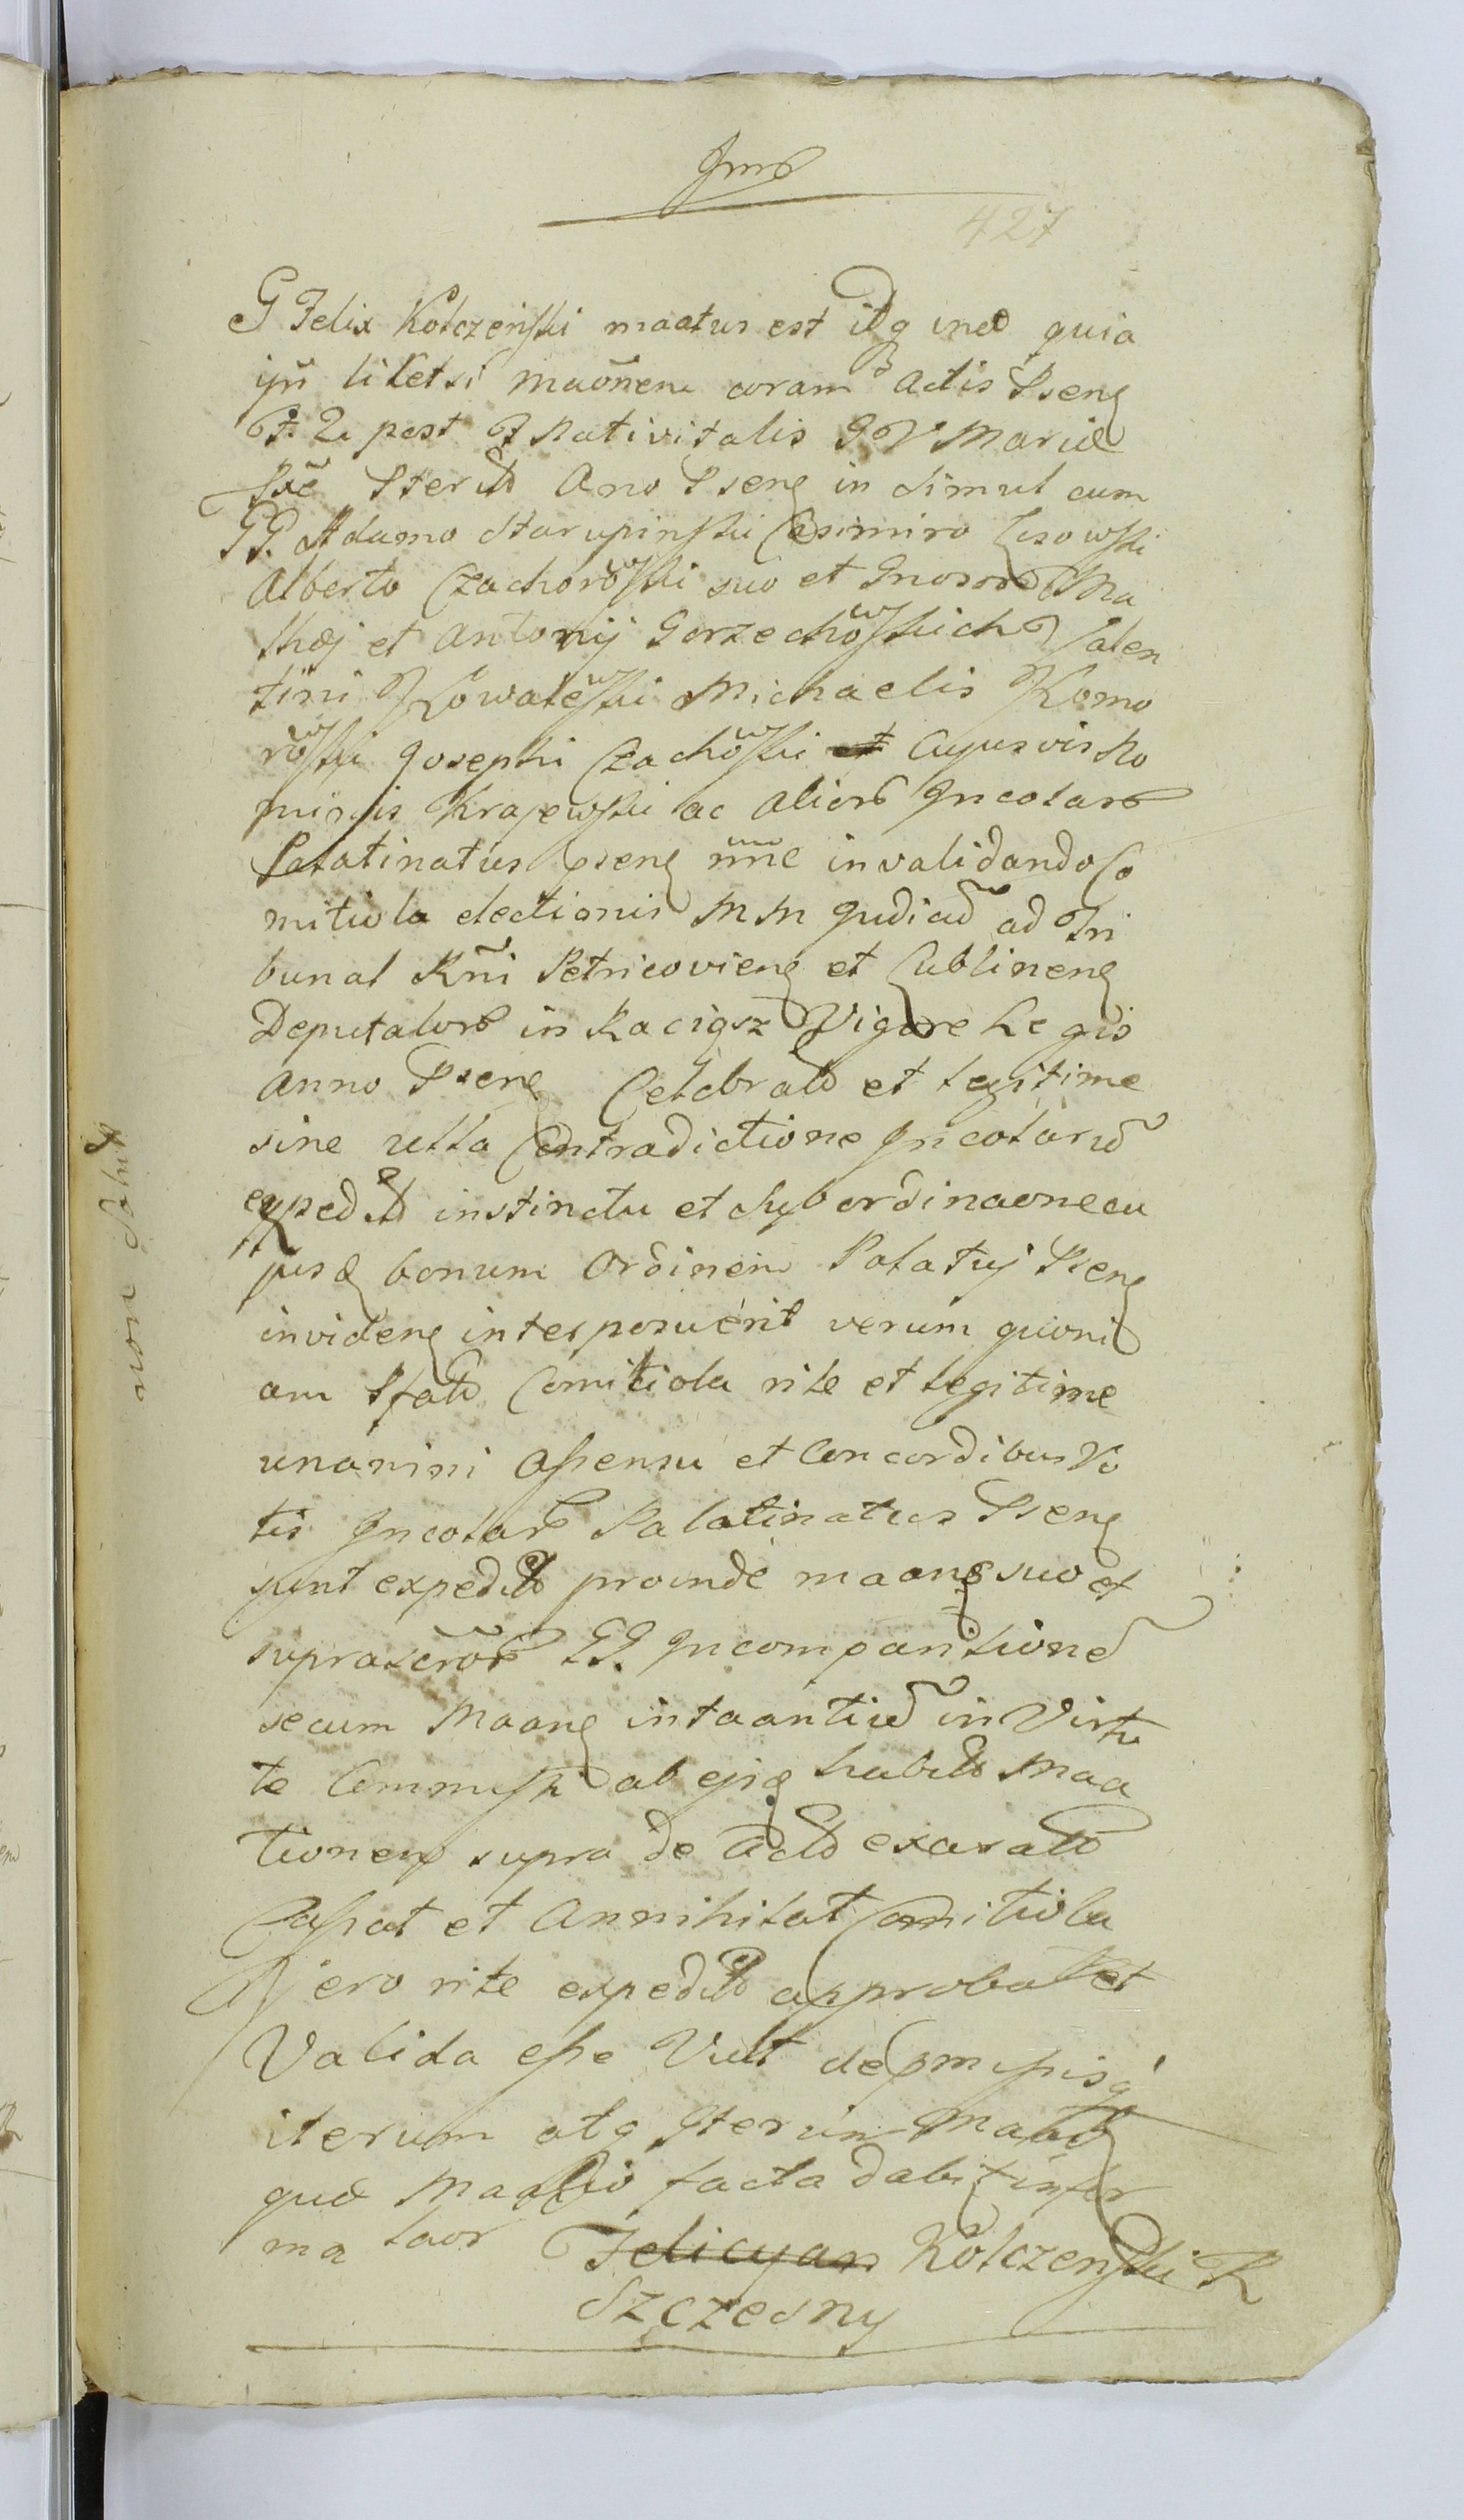 427
G Felix Kołczeński maatus est idq ineo quia
ipse licet si maõnem coram Actis Pseng
F. 2 post F Nativitatis B V Mariæ
Anno Pseng in simul cum
GG. Adamo Starupinski Casimiro Lisowski
Alberto Czachorowski suo et Gnosor Ma
thæj et Antonij Gorzechowskich Valen
tini Kowalewski Michaelis Komo
rowski Josephi Czachowski et Cujusvis No
minis Krajewski ac Alior Incolar
Palatinatus Pseng nñe invalidando Co
mitiola electionis M M Judicũ ad Tri
bunal Rñi Petricovieng et Lublineng
Deputator in Raciąsz Vigore Legis
Anno Pseng Celebrata et legitime
sine ulla Contradictione Incolarũ
expedita instinctu et Subordinaone cu
jusq bonum Ordinem Palatus Pseng
invideng interposuerit verum quoni
am Pfata Comitiola rite et legitime
unanimi Assensu et Concordibus Vo
tis Incolar Palatinatus Pseng
sunt expedita proinde maong suo et
suprascror GG. Incompantione
secum Maong intaantiũ in Virtu
te Commissi ab ejsq habita Maa
tionem supra de Acta exarata
Cassat et Annihilat Comitiola
Vero rite expedita approbat et
Valida esse Vult de pmissisq
iterum atq Iterum Maatʒ
quæ Maatio facta dabit infor
ma laor Felicyan Kołczenski R
Szczęsny
non Sohʒ